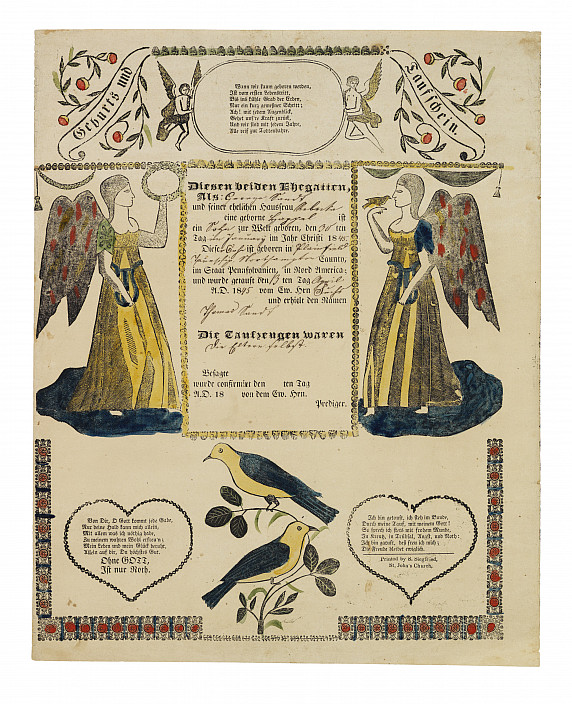 Geburts und
Taufschein.
Wann wir kaum geboren werden,
Ist vom ersten Lebenstritt,
Bis ins kühle Grab der Erden,
Nur ein kurz gemeßner Schritt;
Ach! mit jedem Augenblick,
Gehet unsre Kraft zurück,
Und wir sind mit jedem Jahre,
Alle reif zur Todtenbahre.
Diesen beiden Ehegatten,
Als: George Sandt
und seiner ehelichen Hausfrau Rebecka
eine geborne ist
ein Sohn zur Welt geboren, den
Tag im Januarÿ im Jahr Christi 18
Dieser ist geboren in Plainfield
Taunschip Northampton County,
im Staat Pennsylvanien, in Nord America;
und wurde getauft den ten Tag April
A.D. 1845 vom Ew. Hrn
und erhielt den Namen
Thomas Sandt
Die Taufzeugen waren
die Eltern selbst
Besagte
wurde confirmirt den ten Tag
A.D. 18 von dem Ew. Hrn.
Prediger.
Von Dir, O Gott kommt jede Gabe,
Nur deine Huld kann mich allein,
Mit allem was ich nöthig habe,
Zu meinem wahren Wohl erfreu'n;
Mein Leben und mein Glück beruht,
Allein auf dir, Du höchstes Gut.
Ohne GOTT,
Ist nur Noth.
Ich bin getauft, ich steh im Bunde,
Durch meine Tauf, mit meinem Gott!
So sprech ich stets mit frohem Munde,
In Kreuz, in Trübsal, Angst, und Noth:
Ich bin getauft, deß freu ich mich;
Die Freude bleibet ewiglich.
Printed by S. Siegfried,
St. John's Church,